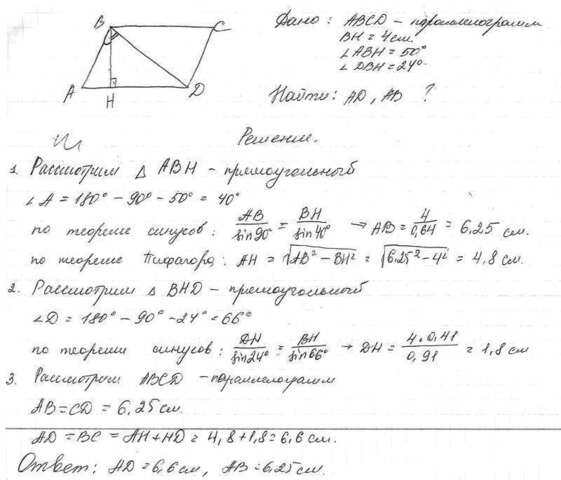 B C
A H D
Дано: ABCD – параллелограмм
BH = 4 см.
∠ABH = 50°
∠DBH = 24°
Найти: AD, AB ?
Решение.
1. Рассмотрим △ ABH – прямоугольный
∠A = 180° – 90° – 50° = 40°
по теореме синусов: AB/sin90° = BH/sin40° → AB = 4/0,64 = 6,25 см.
по теореме Пифагора: AH = √AB² – BH² = √6.25² – 4² = 4,8 см.
2. Рассмотрим △ BHD – прямоугольный
∠D = 180° – 90° – 24° = 66°
по теореме синусов: DH/sin24° = BH/sin66° → DH = 4 · 0,41/0,91 = 1,8 см
3. Рассмотрим ABCD – параллелограмм
AB = CD = 6,25 см.
AD = BC = AH + HD = 4,8 + 1,8 = 6,6 см.
Ответ: AD = 6,6 см, AB = 6,25 см.